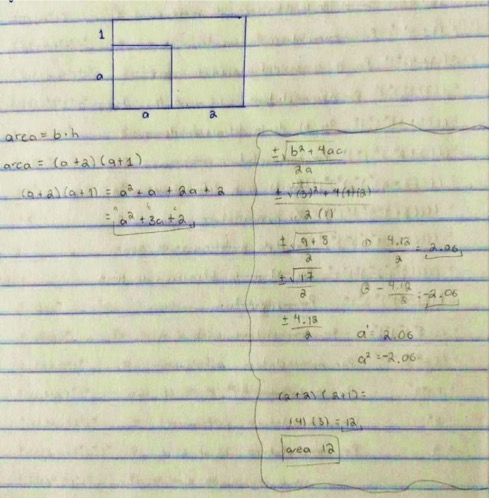 1
a
a 2
area = b · h
area = (a+2)(a+1)
(a+2)(a+1) = a² + a + 2a + 2
= a² + 3a + 2
± √b² + 4ac
2a
± √(3)² + 4(1)(2)
2(1)
± √9+8
2
① 4.12 = 2.06
2
± √17
2
② - 4.12 = -2.06
± 4.12
2
a¹ = 2.06
a² = -2.06
(2+2)(2+1) =
(4)(3) = 12
area 12